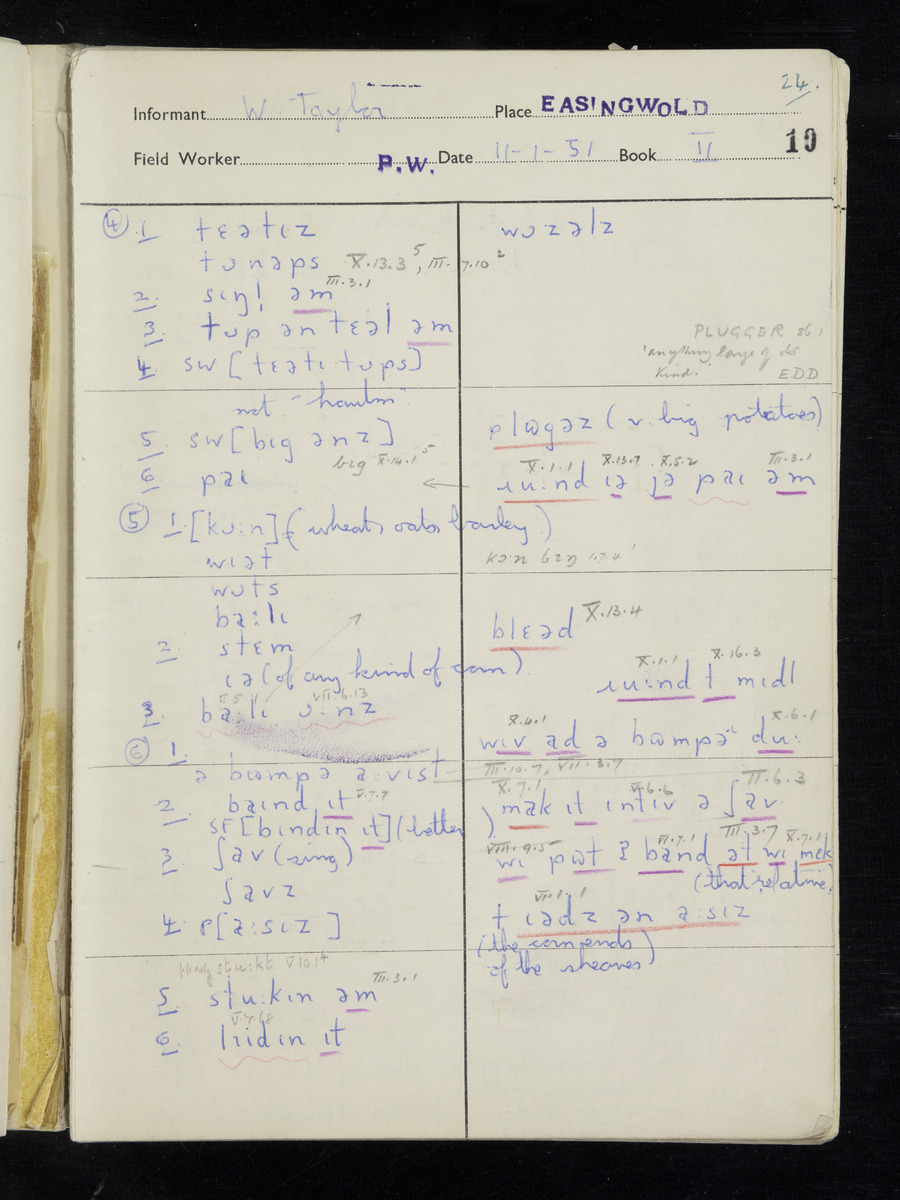 24.
Informant W Taylor Place EASINGWOLD
Field Worker P.W. Date 11-1-51 Book II 10
④ 1 tɛətɪz
tʊnəps X.13.3⁵, III.7.10²
2. sɪŋl əm III.3.1
3. tʊp ən tɛəl əm
4. sw [tɛətɪ tʊps]
not "haulm"
5 sw [bɪg ənz]
big X.14.1⁵
6 paɪ
⑤ 1. [kɔ:n] (wheats oats barley)
wɪət
wʊts
ba:lɪ
2. stɛm
ɪə (of any kind of corn)
VII.6.13
3. ba:lɪ ɔ:nz
⑥ 1.
ə bɷmpə a:vɪst
2. baɪnd ɪt V.7.7
SF [bɪndɪn ɪt] (better)
3. ʃav (sing)
ʃavz
4. p[a:sɪz]
5 stu:kɪn əm III.3.1
6. lɪidɪn ɪt
wʊzəlz
PLUGGER sb.1
'anything large of its
kind' EDD
plɷgəz (v. big potatoes)
X.1.1 X.13.9 X.5.2 III.3.1
ɹu:nd ɪə jə paɪ əm
kɔ:n bɪŋ 1.7.4'
blɛəd X.13.4
X.1.1 X.16.3
ɹu:nd t mɪdl
X.4.1 X.6.1
wɪv ad ə bɷmpə du:
III.10.7, VII.3.7
X.7.1 V.6.6 II.6.3
mak ɪt ɪntɪv ə ʃav.
VIII.9.5 VI.7.1 III.3.7 X.7.1
wɪ pɷt ə band ət wɪ mɛk
(that relative)
VI.1.1
t ɪədz ən a:sɪz
(the corn ends
of the sheaves)